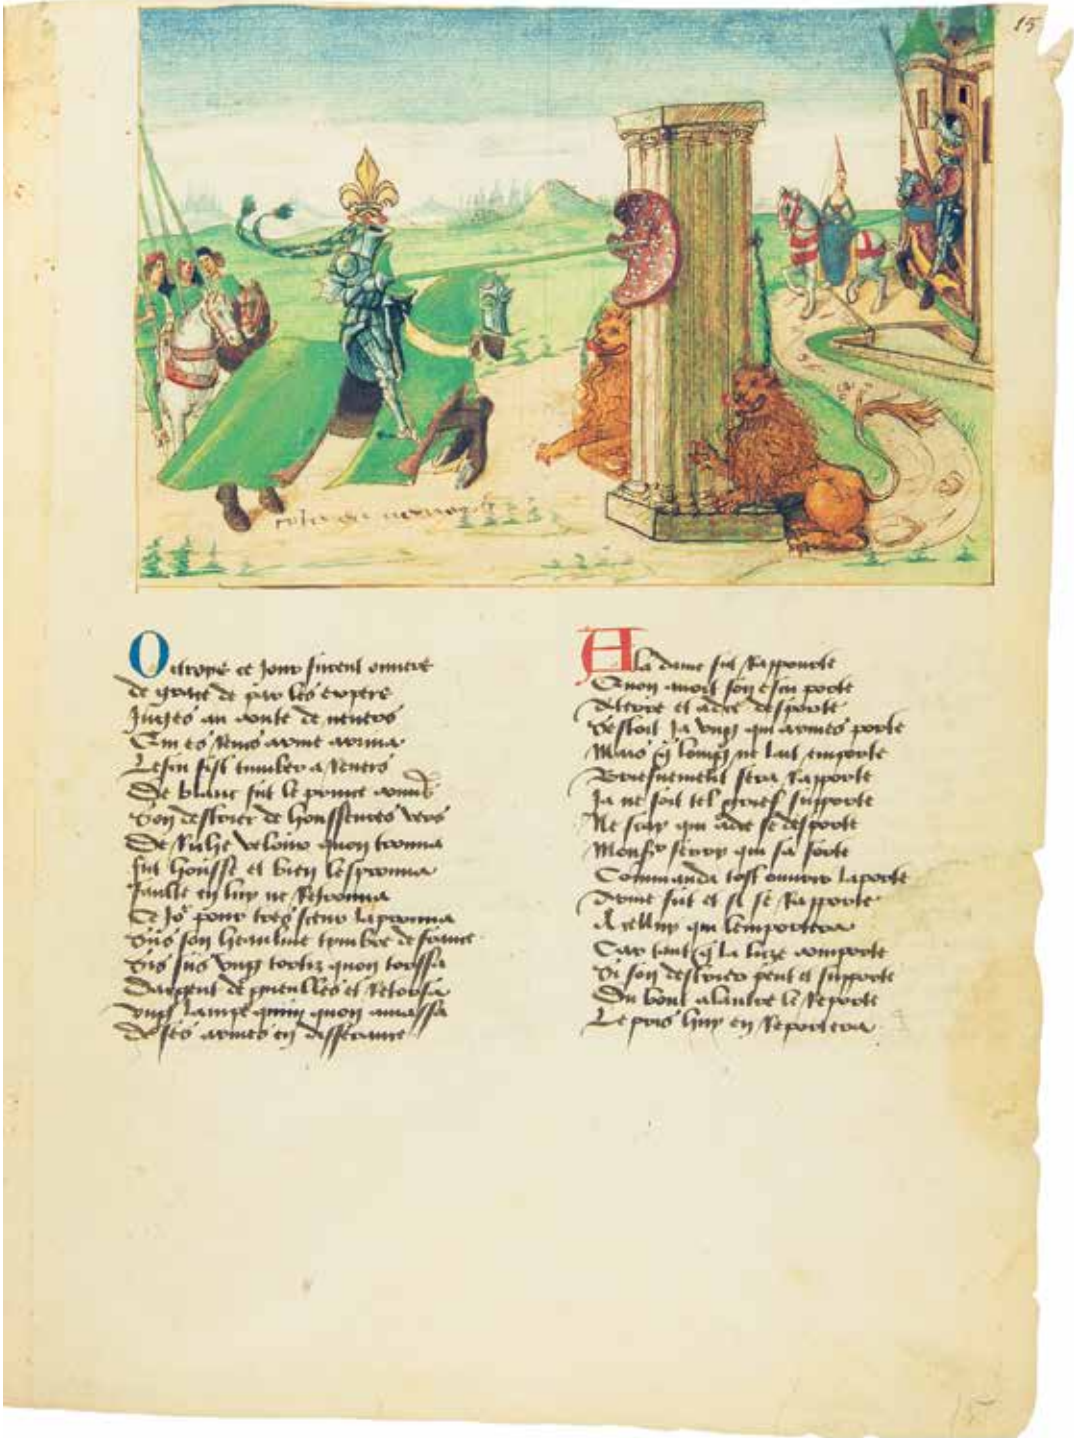 15
Oultre ce jour furent ouvers
de grace de par les expers
Juges au conte de nevers
Qui es Rens arme arriva
Lescu fist tumber a Revers
De blanc fut le prince couvers
Son destrier de houssures vers
De Riche veloux quon trouva
fut housse et bien lesprouva
faulte en luy ne Retrouva
Ce Jor pour tres seur laprouva
Sus son heaulme tymbre de france
Sus sus ung tortiz quon torssa
Dargent de gueulles et Retorsa
ung lampequin quon amassa
De ses armes en differance
A la dame fut Rapporte
Quon avoit son escu porte
A terre et a dre desporte
Sestoit Ja ung qui armes porte
Mais q̃ longz ne lait emporte
Briefvement sera Rapporte
Ja ne soit tel grief supporte
Ne scay qui a dre se desporte
Monsr servoy qui sa sorte
Commanda tost ouvrir la porte
Arme fut et si se Rapporte
A celluy qui lemportera
Car tant q̃ la lice comporte
Si son destrier peut et supporte
Du bout a laultre le Reporte
Le pris luy en Reportera
15